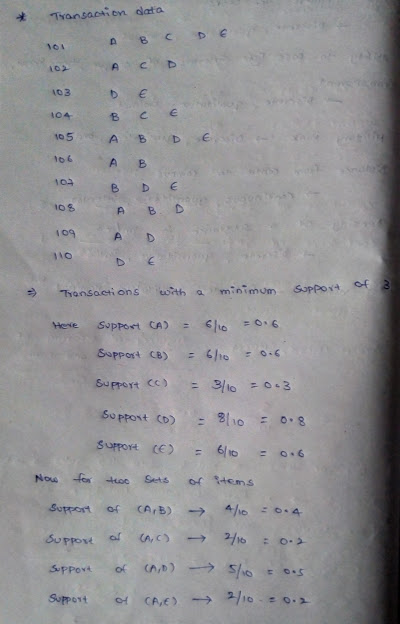 * Transaction data
101 A B C D E
102 A C D
103 D E
104 B C E
105 A B D E
106 A B
107 B D E
108 A B D
109 A D
110 D E
⇒ Transactions with a minimum support of 3
Here Support (A) = 6/10 = 0.6
Support (B) = 6/10 = 0.6
Support (C) = 3/10 = 0.3
Support (D) = 8/10 = 0.8
Support (E) = 6/10 = 0.6
Now for two sets of items
Support of (A,B) → 4/10 = 0.4
Support of (A,C) → 2/10 = 0.2
Support of (A,D) → 5/10 = 0.5
Support of (A,E) → 2/10 = 0.2